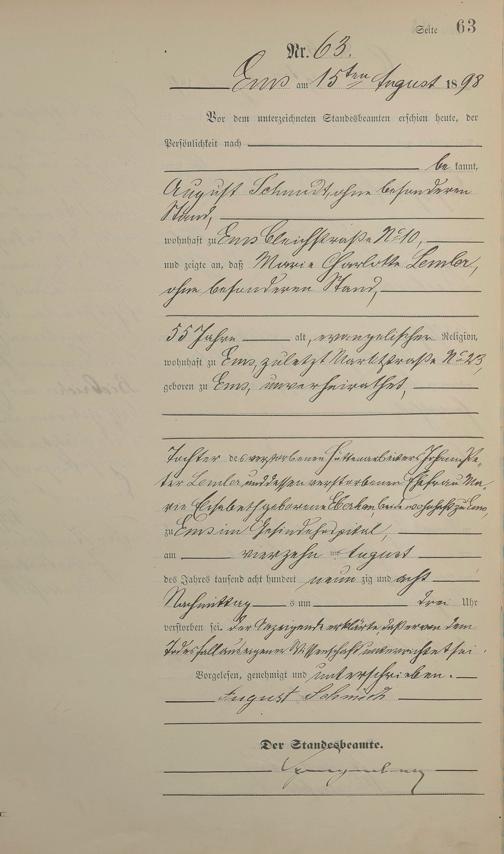 Seite 63
Nr. 63.
Ems am 15ten August 1898
Vor dem unterzeichneten Standesbeamten erschien heute, der
Persönlichkeit nach
bekannt,
August Schmidt, ohne besonderen
Stand,
wohnhaft zu Ems Bleichstraße No 10,
und zeigte an, daß Marie Charlotte Lemler,
ohne besonderen Stand,
55 Jahre alt, evangelischer Religion,
wohnhaft zu Ems, zuletzt Marktstraße No 23,
geboren zu Ems, unverheirathet,
Tochter des verstorbenen Hüttenarbeiters Johann Pe-
ter Lemler und dessen verstorbenen Ehefrau Ma-
rie Elisabeth geborene beide wohnhaft zu Ems,
zu Ems im Hospital,
am vierzehn ten August
des Jahres tausend acht hundert neunzig und acht
Nachmittags um drei Uhr
verstorben sei. Der Anzeigende erklärte, daß er von dem
Todesfall aus eigener Wissenschaft unterrichtet sei.
Vorgelesen, genehmigt und unterschrieben.
August Schmidt
Der Standesbeamte.